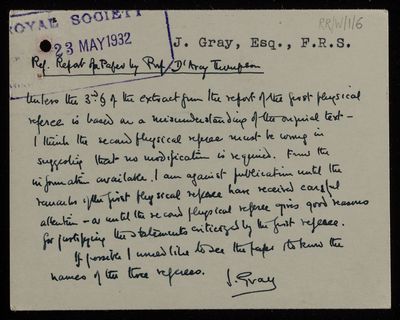 RR/W/1/6
ROYAL SOCIETY
23 MAY 1932
J. Gray, Esq., F.R.S.
Ref. Report on Paper by Prof. D'Arcy Thompson
Unless the 3rd § of the extract from the report of the first physical
referee is based on a misunderstanding of the original text –
I think the second physical referee must be wrong in
suggesting that no modification is required. From the
information available I am against publication until the
remarks of the first physical referee have received careful
attention – or until the second physical referee gives good reasons
for justifying the statements criticized by the first referee.
If possible I would like to see the paper & to know the
names of the three referees.
J. Gray